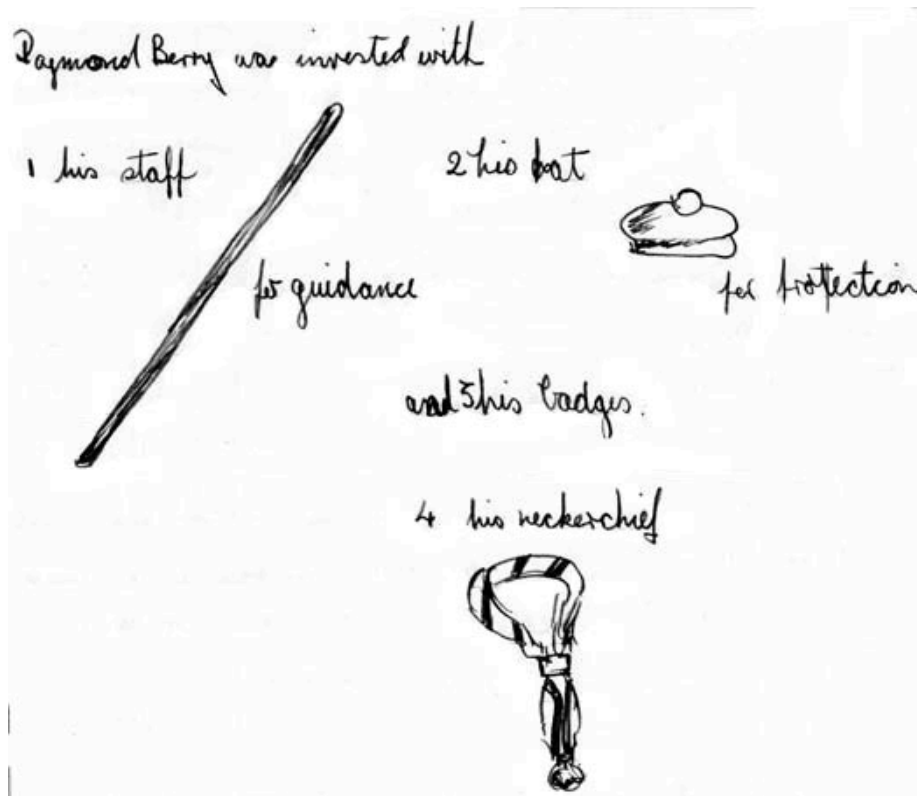 Raymond Berry was invested with
1 his staff
2 his hat
for guidance
for protection
and 3 his badges.
4 his neckerchief